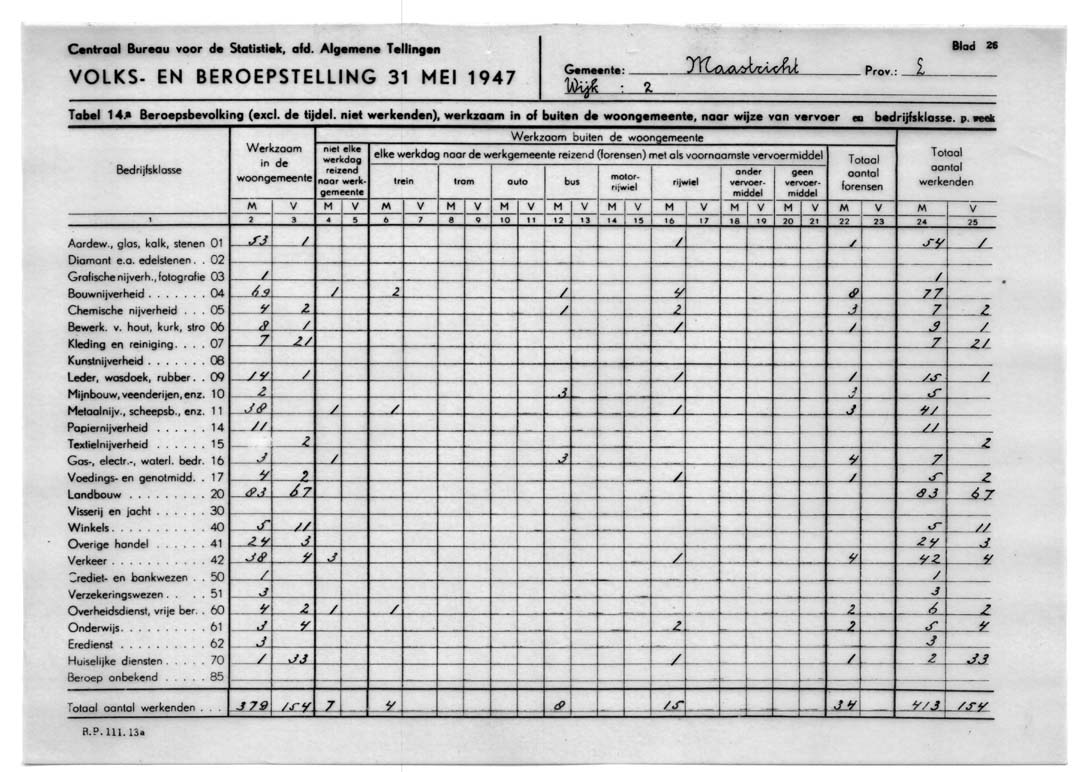 Centraal Bureau voor de Statistiek, afd. Algemene Tellingen
Blad 26
VOLKS- EN BEROEPSTELLING 31 MEI 1947
Gemeente: Maastricht Prov.: L
Wijk : 2
Tabel 14.a Beroepsbevolking (excl. de tijdel. niet werkenden), werkzaam in of buiten de woongemeente, naar wijze van vervoer en bedrijfsklasse. p. week
Bedrijfsklasse
Werkzaam in de woongemeente
Werkzaam buiten de woongemeente
niet elke werkdag reizend naar werkgemeente
elke werkdag naar de werkgemeente reizend (forensen) met als voornaamste vervoermiddel
trein tram auto bus motor-rijwiel rijwiel ander vervoer-middel geen vervoer-middel
Totaal aantal forensen
Totaal aantal werkenden
M V M V M V M V M V M V M V M V M V M V M V M V
1 2 3 4 5 6 7 8 9 10 11 12 13 14 15 16 17 18 19 20 21 22 23 24 25
Aardew., glas, kalk, stenen 01 53 1 1 1 54 1
Diamant e.a. edelstenen . . 02
Grafische nijverh., fotografie 03 1 1
Bouwnijverheid . . . . . . . 04 69 1 2 1 4 8 77
Chemische nijverheid . . . 05 4 2 1 2 3 7 2
Bewerk. v. hout, kurk, stro 06 8 1 1 1 9 1
Kleding en reiniging. . . . 07 7 21 7 21
Kunstnijverheid . . . . . . 08
Leder, wasdoek, rubber. . 09 14 1 1 1 15 1
Mijnbouw, veenderijen, enz. 10 2 3 3 5
Metaalnijv., scheepsb., enz. 11 38 1 1 1 3 41
Papiernijverheid . . . . . 14 11 11
Textielnijverheid . . . . . 15 2 2
Gas-, electr.-, waterl. bedr. 16 3 1 3 4 7
Voedings- en genotmidd. . 17 4 2 1 1 5 2
Landbouw . . . . . . . . 20 83 67 83 67
Visserij en jacht . . . . . 30
Winkels. . . . . . . . . . 40 5 11 5 11
Overige handel . . . . . . 41 24 3 24 3
Verkeer . . . . . . . . . . 42 38 4 3 1 4 42 4
Crediet- en bankwezen . . 50 1 1
Verzekeringswezen . . . . 51 3 3
Overheidsdienst, vrije ber. . 60 4 2 1 1 2 6 2
Onderwijs. . . . . . . . . 61 3 4 2 2 5 4
Eredienst . . . . . . . . . 62 3 3
Huiselijke diensten . . . . 70 1 33 1 1 2 33
Beroep onbekend . . . . . 85
Totaal aantal werkenden . . . 379 154 7 4 8 15 34 413 154
R.P. 111. 13a